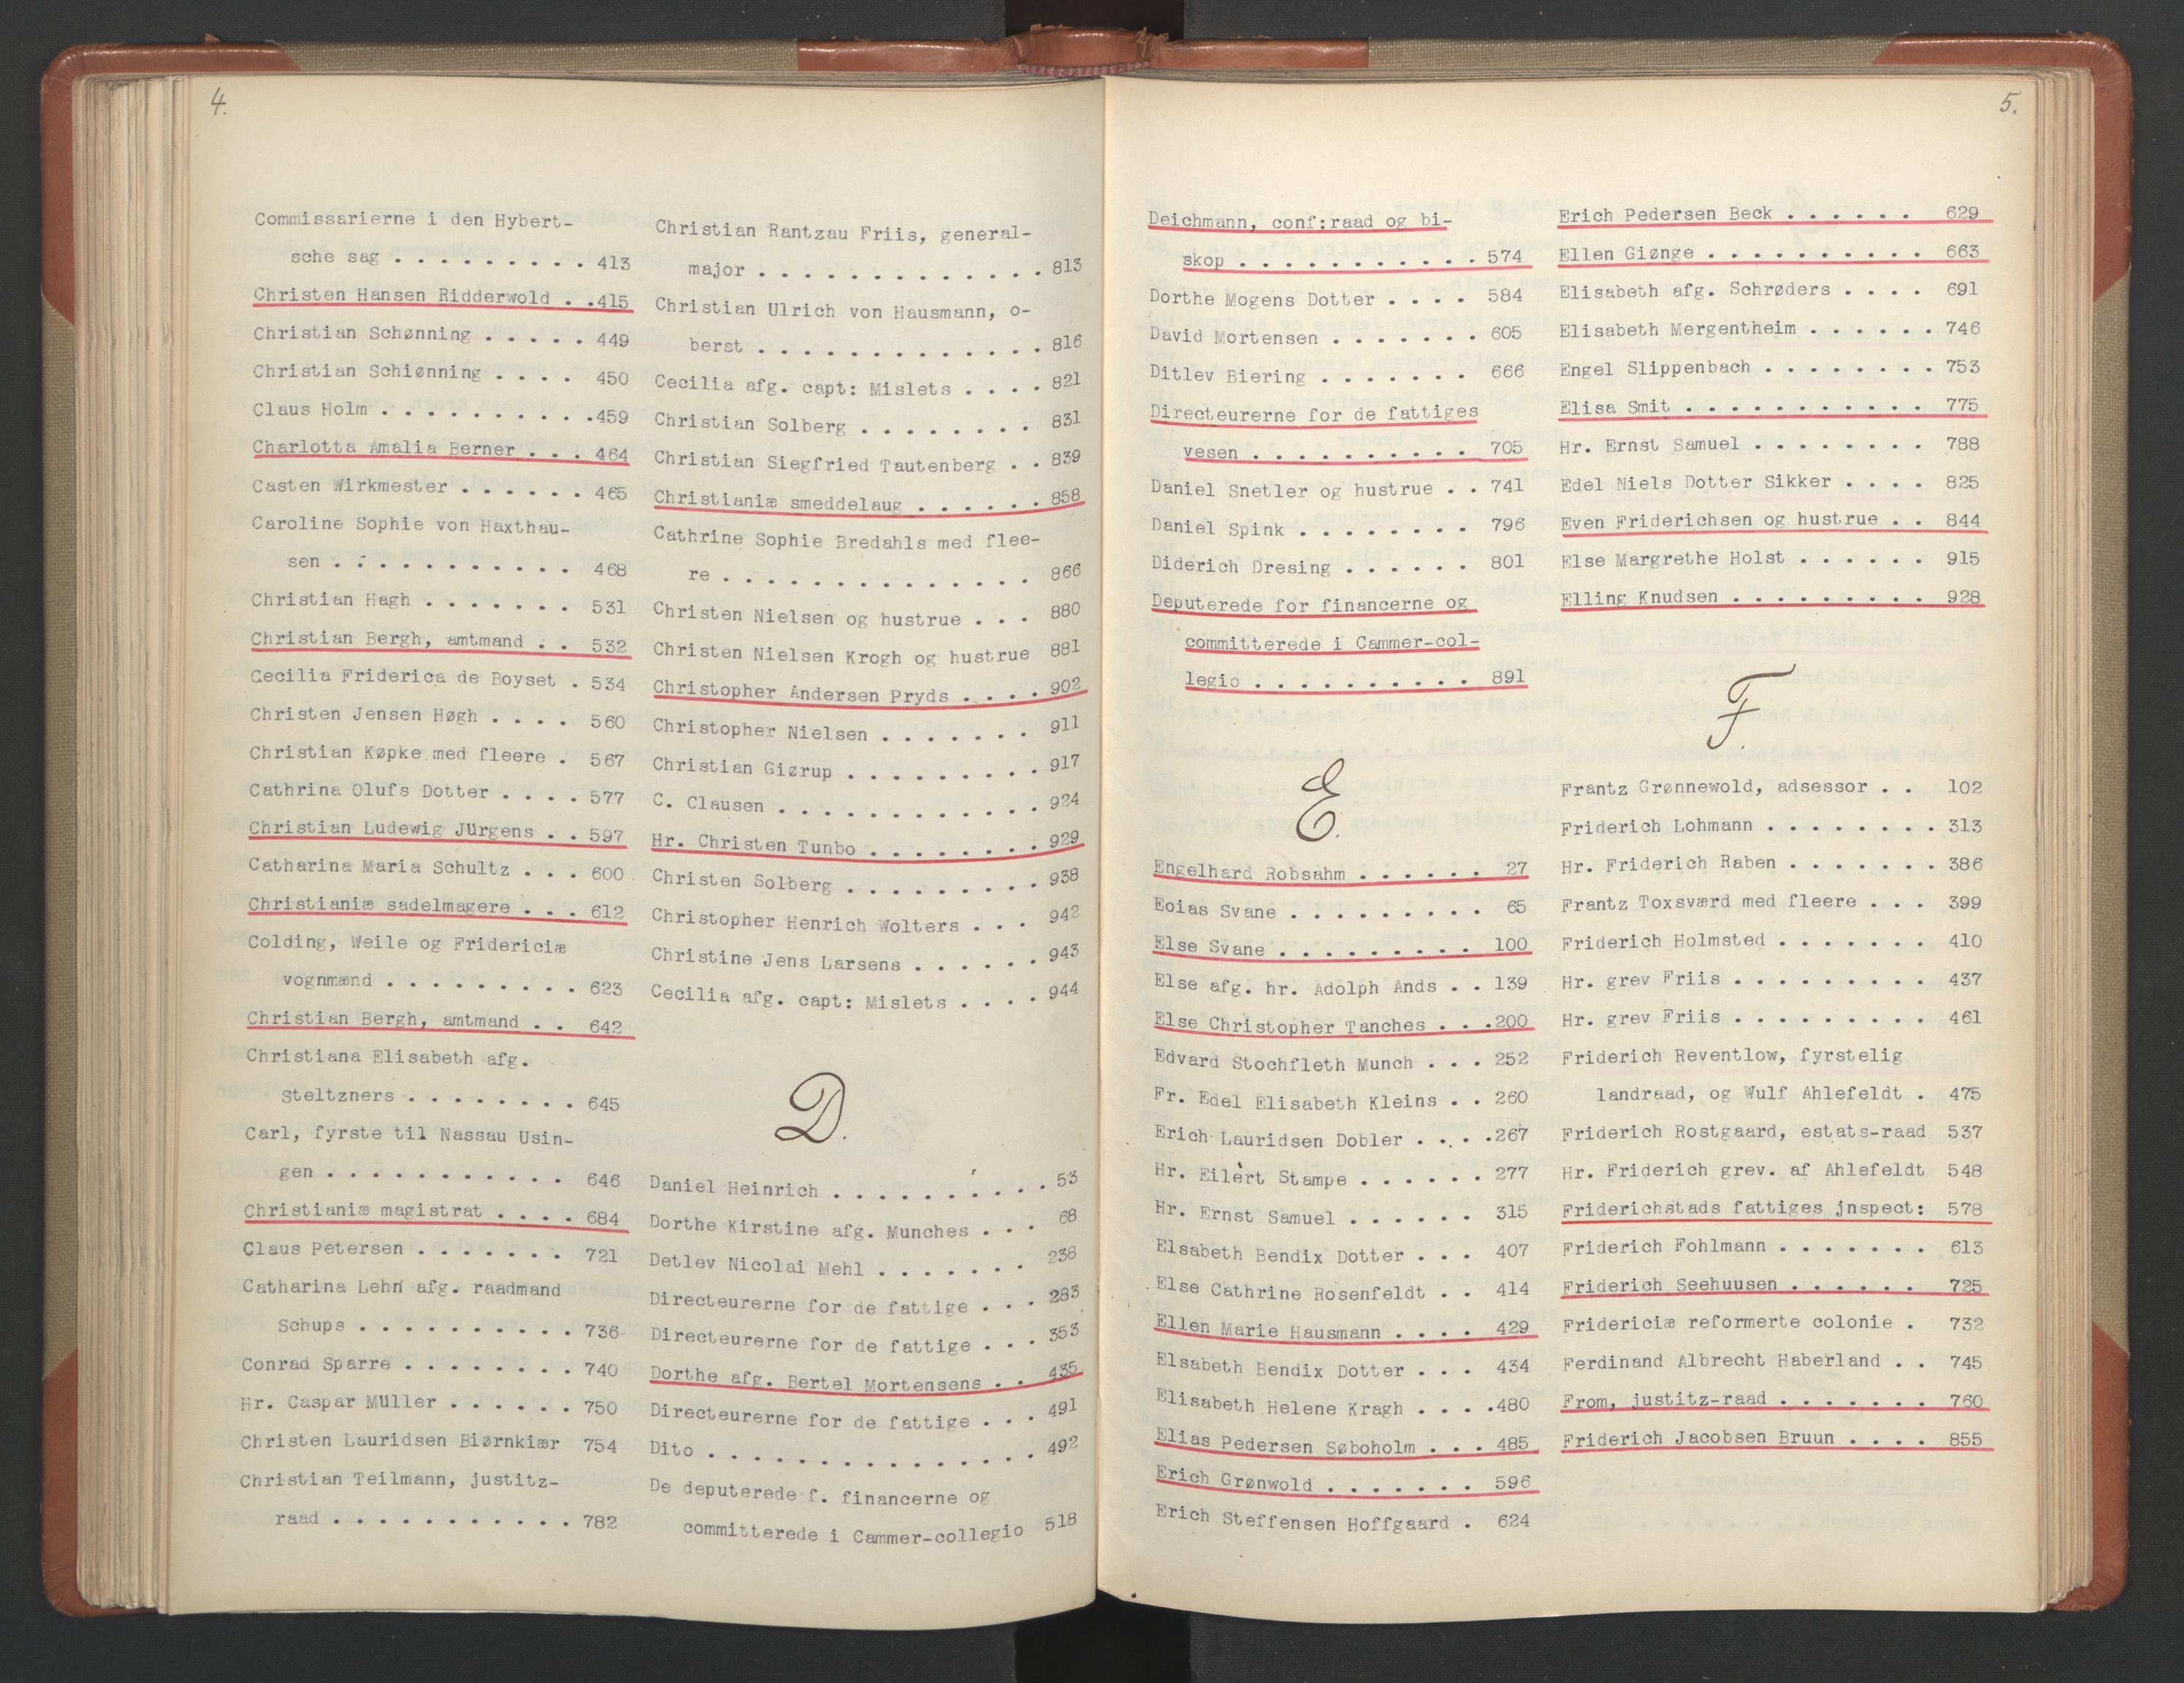 4.
Commissarierne i den Hybert-
sche sag . . . . . . . . . 413
Christen Hansen Ridderwold . . 415
Christian Schønning . . . . . 449
Christian Schiønning . . . . 450
Claus Holm . . . . . . . . . . 459
Charlotta Amalia Berner . . . 464
Casten Wirkmester . . . . . . 465
Caroline Sophie von Haxthau-
sen . . . . . . . . . . . 468
Christian Hagh . . . . . . . 531
Christian Bergh, amtmand . . 532
Cecilia Friderica de Boyset . 534
Christen Jensen Høgh . . . . 560
Christian Køpke med fleere . 567
Cathrina Olufs Dotter . . . . 577
Christian Ludewig Jürgens . . 597
Catharina Maria Schultz . . . 600
Christianiæ sadelmagere . . . 612
Colding, Weile og Fridericiæ
vognmænd . . . . . . . . . 623
Christian Bergh, amtmand . . 642
Christiana Elisabeth afg.
Steltzners . . . . . . . . 645
Carl, fyrste til Nassau Usin-
gen . . . . . . . . . . . 646
Christianiæ magistrat . . . . 684
Claus Petersen . . . . . . . 721
Catharina Lehn afg. raadmand
Schups . . . . . . . . . . 736
Conrad Sparre . . . . . . . . 740
Hr. Caspar Müller . . . . . . 750
Christen Lauridsen Biørnkiær 754
Christian Teilmann, justitz-
raad . . . . . . . . . . . 782
Christian Rantzau Friis, general-
major . . . . . . . . . . . . . 813
Christian Ulrich von Hausmann, o-
berst . . . . . . . . . . . . . 816
Cecilia afg. capt: Mislets . . . . 821
Christian Solberg . . . . . . . . 831
Christian Siegfried Tautenberg . . 839
Christianiæ smeddelaug . . . . . . 858
Cathrine Sophie Bredahls med flee-
re . . . . . . . . . . . . . . 866
Christen Nielsen og hustrue . . . 880
Christen Nielsen Krogh og hustrue 881
Christopher Andersen Pryds . . . . 902
Christopher Nielsen . . . . . . . 911
Christian Giørup . . . . . . . . . 917
C. Clausen . . . . . . . . . . . . 924
Hr. Christen Tunbo . . . . . . . . 929
Christen Solberg . . . . . . . . . 938
Christopher Henrich Wolters . . . 942
Christine Jens Larsens . . . . . . 943
Cecilia afg. capt: Mislets . . . . 944
D.
Daniel Heinrich . . . . . . . . . . 53
Dorthe Kirstine afg. Munches . . . 68
Detlev Nicolai Mehl . . . . . . . 238
Directeurerne for de fattige . . . 283
Directeurerne for de fattige . . . 353
Dorthe afg. Bertel Mortensens . . 435
Directeurerne for de fattige . . . 491
Dito . . . . . . . . . . . . . . . 492
De deputerede f. financerne og
committerede i Cammer-collegio 518
5.
Deichmann, conf:raad og bi-
skop . . . . . . . . . . . 574
Dorthe Mogens Dotter . . . . 584
David Mortensen . . . . . . . 605
Ditlev Biering . . . . . . . 666
Directeurerne for de fattiges
vesen . . . . . . . . . . 705
Daniel Snetler og hustrue . . 741
Daniel Spink . . . . . . . . 796
Diderich Dresing . . . . . . 801
Deputerede for financerne og
committerede i Cammer-col-
legio . . . . . . . . . . 891
E.
Engelhard Robsahm . . . . . . 27
Eoias Svane . . . . . . . . . 65
Else Svane . . . . . . . . . 100
Else afg. hr. Adolph Ands . . 139
Else Christopher Tanches . . . 200
Edvard Stochfleth Munch . . . 252
Fr. Edel Elisabeth Kleins . . 260
Erich Lauridsen Dobler . . . . 267
Hr. Eilert Stampe . . . . . . 277
Hr. Ernst Samuel . . . . . . 315
Elsabeth Bendix Dotter . . . 407
Else Cathrine Rosenfeldt . . 414
Ellen Marie Hausmann . . . . 429
Elsabeth Bendix Dotter . . . 434
Elisabeth Helene Kragh . . . . 480
Elias Pedersen Søboholm . . . 485
Erich Grønwold . . . . . . . 596
Erich Steffensen Hoffgaard . 624
Erich Pedersen Beck . . . . . . 629
Ellen Giønge . . . . . . . . . . 663
Elisabeth afg. Schrøders . . . . 691
Elisabeth Mergentheim . . . . . . 746
Engel Slippenbach . . . . . . . . 753
Elisa Smit . . . . . . . . . . . 775
Hr. Ernst Samuel . . . . . . . . 788
Edel Niels Dotter Sikker . . . . 825
Even Friderichsen og hustrue . . 844
Else Margrethe Holst . . . . . . 915
Elling Knudsen . . . . . . . . . 928
F.
Frantz Grønnewold, adsessor . . 102
Friderich Lohmann . . . . . . . . 313
Hr. Friderich Raben . . . . . . . 386
Frantz Toxsværd med fleere . . . 399
Friderich Holmsted . . . . . . . 410
Hr. grev Friis . . . . . . . . . 437
Hr. grev Friis . . . . . . . . . 461
Friderich Reventlow, fyrstelig
landraad, og Wulf Ahlefeldt . 475
Friderich Rostgaard, estats-raad 537
Hr. Friderich grev. af Ahlefeldt 548
Friderichstads fattiges jnspect: 578
Friderich Fohlmann . . . . . . . 613
Friderich Seehuusen . . . . . . 725
Fridericiæ reformerte colonie . 732
Ferdinand Albrecht Haberland . . 745
From, justitz-raad . . . . . . . 760
Friderich Jacobsen Bruun . . . . 855